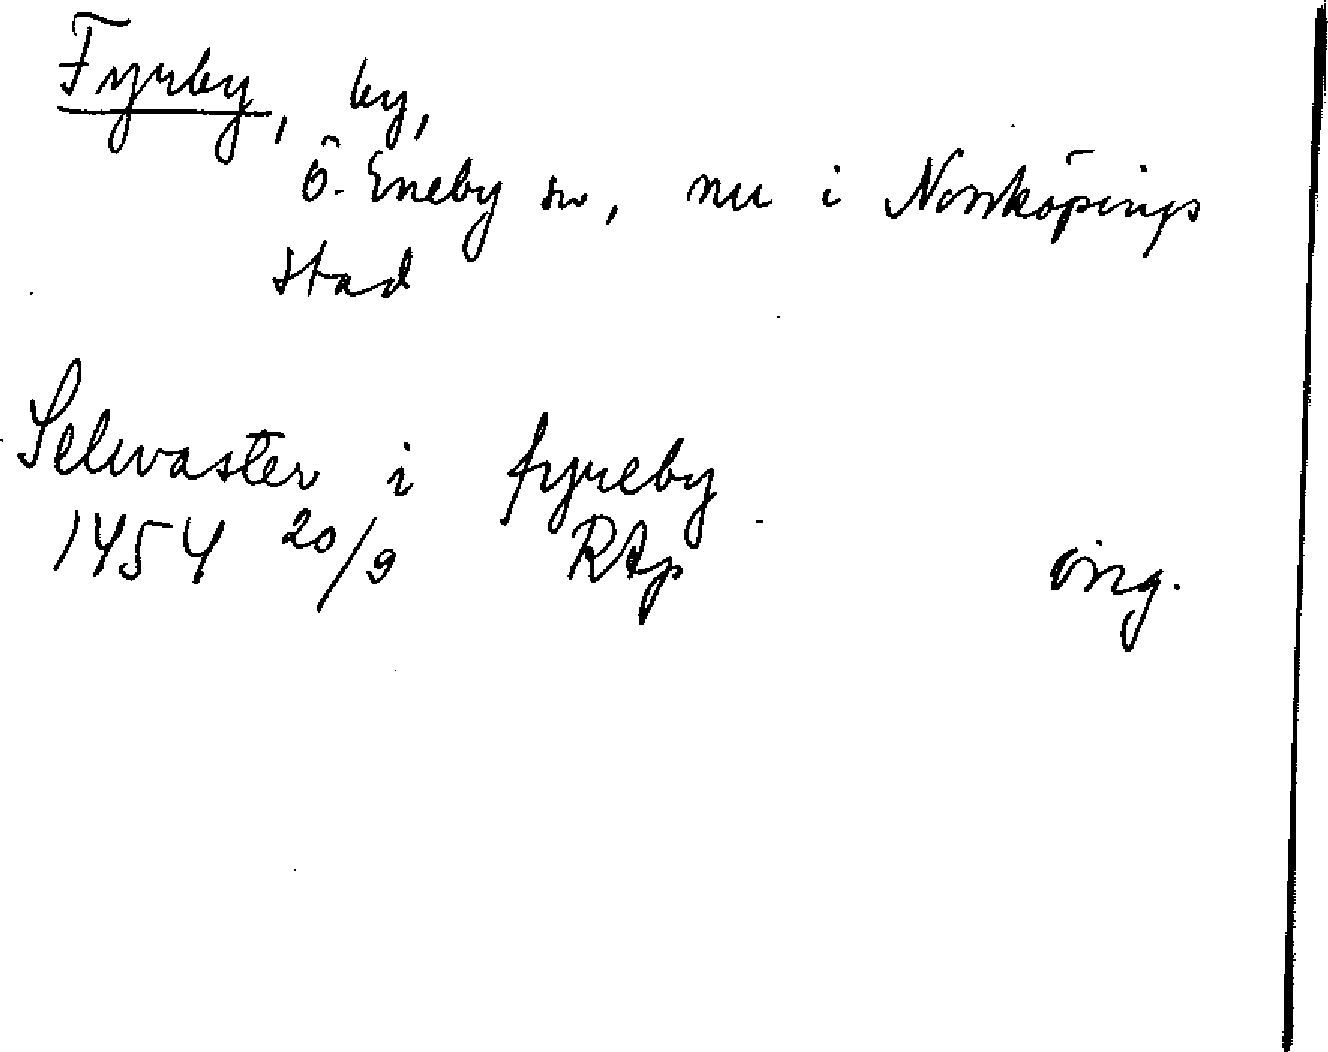 Fyrby, by,
Ö. Eneby sn, nu i Norrköpings
stad
Selwaster i fyreby
1454 20/9 RAp orig.